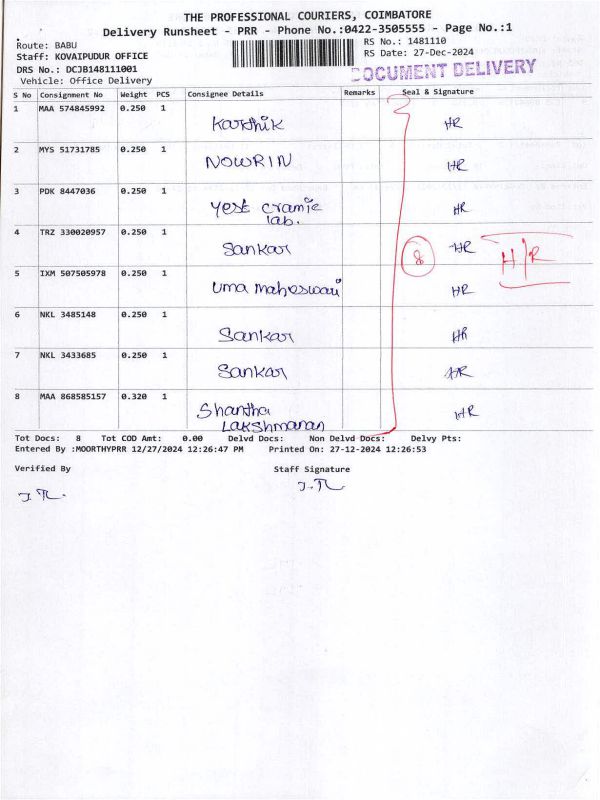 THE PROFESSIONAL COURIERS, COIMBATORE
Delivery Runsheet - PRR - Phone No.:0422-3505555 - Page No.:1
Route: BABU
RS No.: 1481110
Staff: KOVAIPUDUR OFFICE
RS Date: 27-Dec-2024
DRS No.: DCJB148111001
Vehicle: Office Delivery
DOCUMENT DELIVERY
S No Consignment No Weight PCS Consignee Details Remarks Seal & Signature
1 MAA 574845992 0.250 1 Karthik HR
2 MYS 51731785 0.250 1 NOWRIN HR
3 PDK 8447036 0.250 1 Yest cramie HR
lab.
4 TRZ 330020957 0.250 1 Sankar HR
8 H/R
5 IXM 507505978 0.250 1 Uma Maheswari HR
6 NKL 3485148 0.250 1 Sankar HR
7 NKL 3433685 0.250 1 Sankar HR
8 MAA 868585157 0.320 1 Shantha HR
Lakshmanan
Tot Docs: 8 Tot COD Amt: 0.00 Delvd Docs: Non Delvd Docs: Delvy Pts:
Entered By :MOORTHYPRR 12/27/2024 12:26:47 PM Printed On: 27-12-2024 12:26:53
Verified By Staff Signature